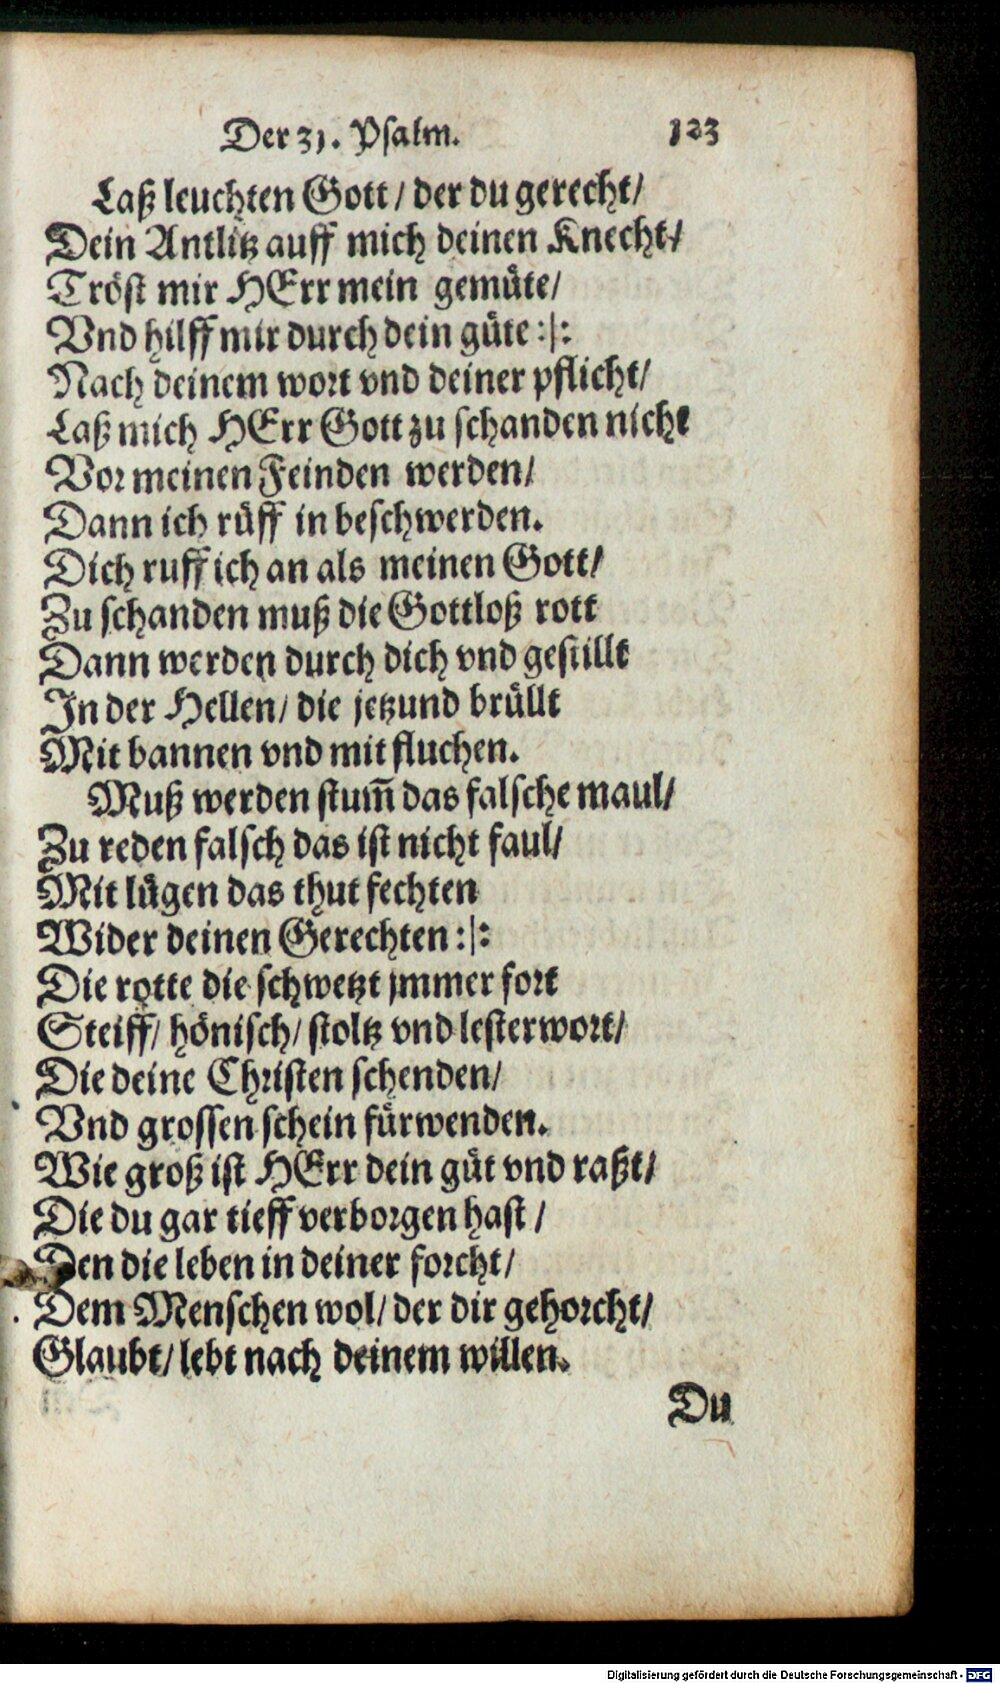 Der 31. Psalm. 123
Laß leuchten Gott / der du gerecht /
Dein Antlitz auff mich deinen Knecht /
Tröst mir HErr mein gemüte /
Vnd hilff mir durch dein güte :|:
Nach deinem wort vnd deiner pflicht /
Laß mich HErr Gott zu schanden nicht
Vor meinen Feinden werden /
Dann ich rüff in beschwerden.
Dich ruff ich an als meinen Gott /
Zu schanden muß die Gottloß rott
Dann werden durch dich vnd gestillt
In der Hellen / die jetzund brüllt
Mit bannen vnd mit fluchen.
Muß werden stum̃ das falsche maul /
Zu reden falsch das ist nicht faul /
Mit lügen das thut fechten
Wider deinen Gerechten :|:
Die rotte die schwetzt jmmer fort
Steiff / hönisch / stoltz vnd lesterwort /
Die deine Christen schenden /
Vnd grossen schein fürwenden.
Wie groß ist HErr dein güt vnd raßt /
Die du gar tieff verborgen hast /
Den die leben in deiner forcht /
Dem Menschen wol / der dir gehorcht /
Glaubt / lebt nach deinem willen.
Du
Digitalisierung gefördert durch die Deutsche Forschungsgemeinschaft - DFG